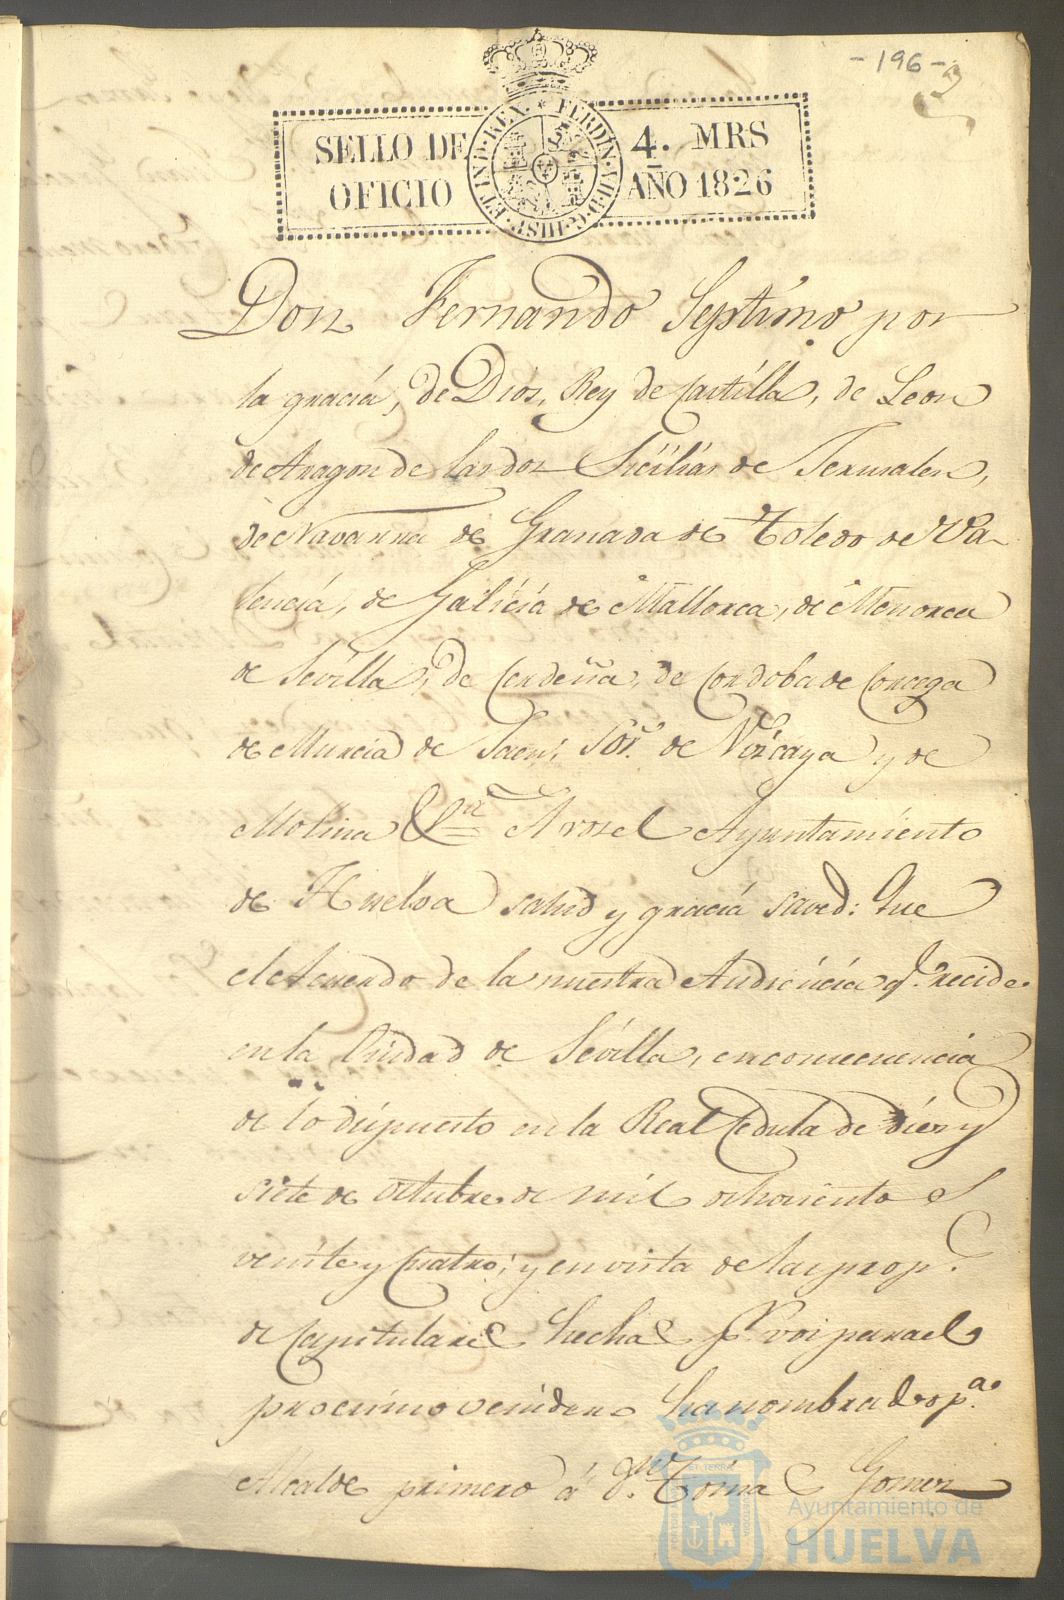 -196-
SELLO DE 4. MRS
OFICIO AÑO 1826
FERDIN. VII. D. G. HISP. ET IND. REX.
Don Fernando Septimo por
la gracia, de Dios, Rey de Castilla, de Leon
de Aragon de las dos Sicilias de Jerusalen,
de Navarra de Granada de Toledo de Va-
lencia, de Galicia de Mallorca, de Menorca
de Sevilla, de Cerdeña, de Cordoba de Corcega
de Murcia de Jaen, Sor. de Vizcaya y de
Molina &ra A vos el Ayuntamiento
de Huelva salud y gracia saved: Que
el Acuerdo de la nuestra Audiencia q.e recide
en la Ciudad de Sevilla, en consecuencia
de lo dispuesto en la Real Cedula de diez y
siete de octubre de mil ochociento s
veinte y cuatro; y en vista de las prop.s
de Capitulares hechas p.r vos para el
procsimo venidero ha nombrado p.a
Alcalde primero á d.n Tomas Gomez
Ayuntamiento de
HUELVA